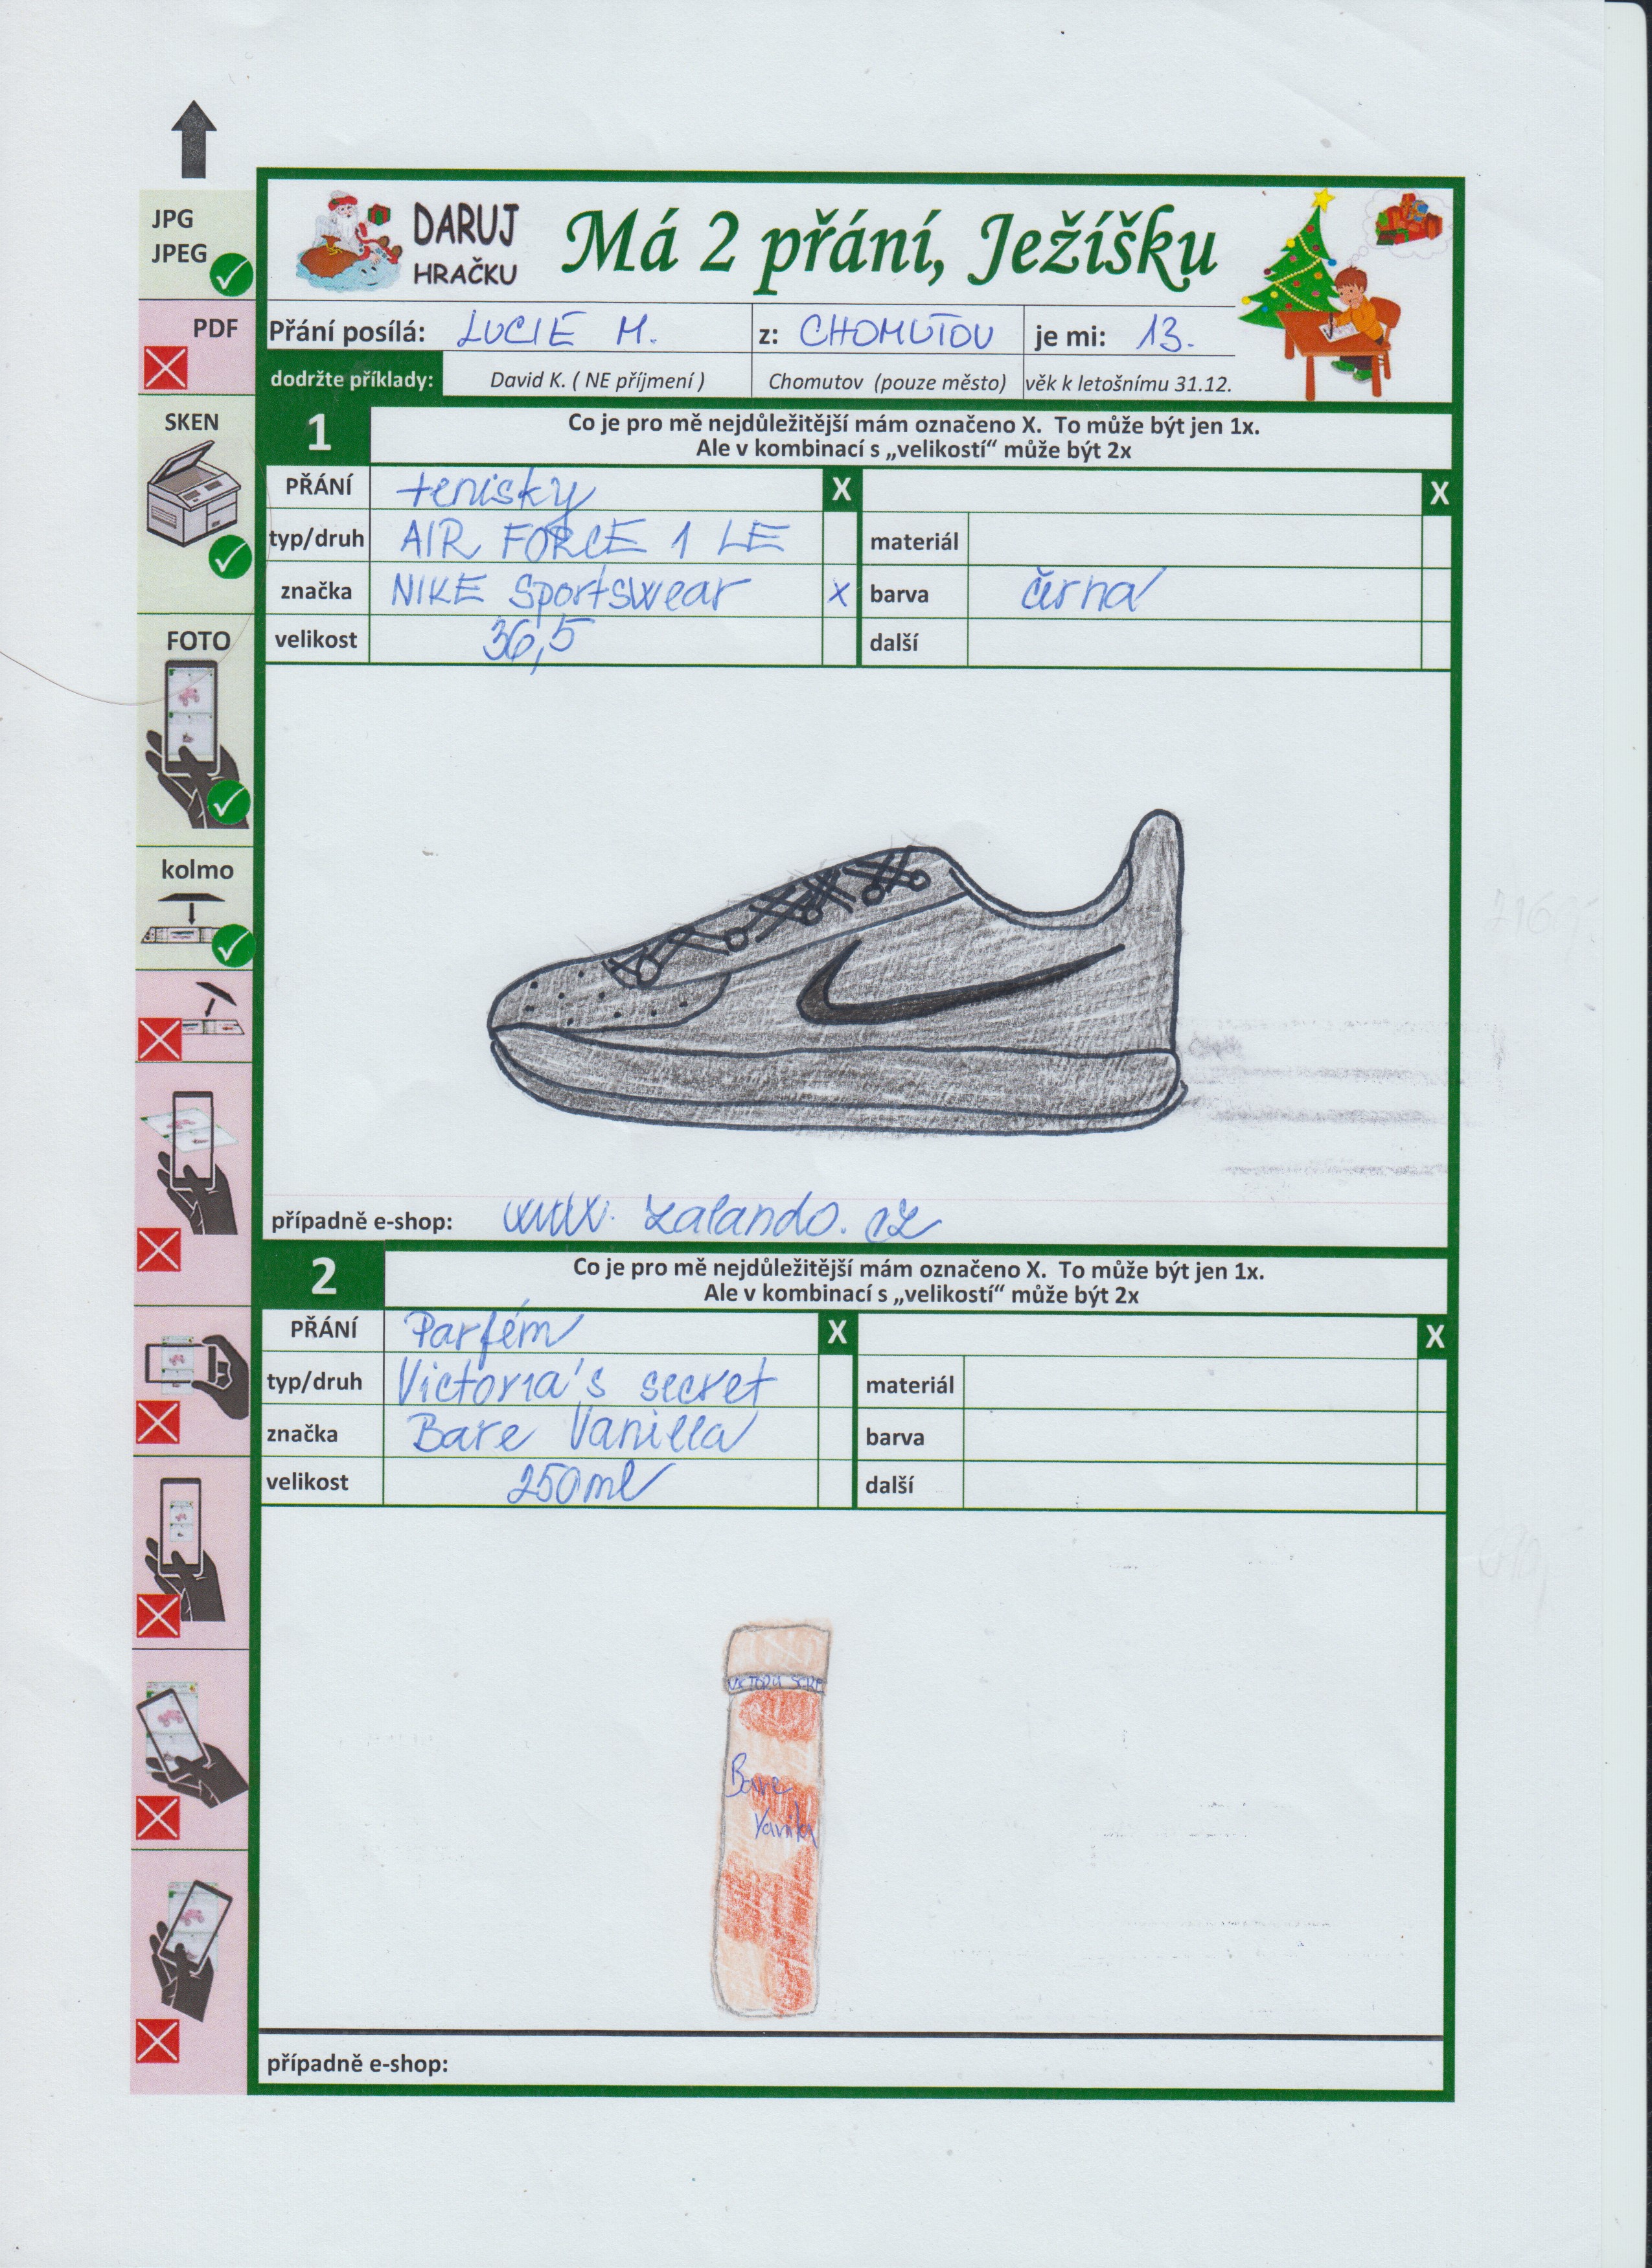 JPG
JPEG
PDF
SKEN
FOTO
kolmo
DARUJ
HRAČKU
Má 2 přání, Ježíšku
Přání posílá: LUCIE M. z: CHOMUTOV je mi: 13.
dodržte příklady: David K. ( NE příjmení ) Chomutov (pouze město) věk k letošnímu 31.12.
1 Co je pro mě nejdůležitější mám označeno X. To může být jen 1x.
Ale v kombinací s „velikostí“ může být 2x
PŘÁNÍ tenisky X X
typ/druh AIR FORCE 1 LE materiál
značka NIKE Sportswear X barva černá
velikost 36,5 další
případně e-shop: www. zalando. cz
2 Co je pro mě nejdůležitější mám označeno X. To může být jen 1x.
Ale v kombinací s „velikostí“ může být 2x
PŘÁNÍ Parfém X X
typ/druh Victoria's secret materiál
značka Bare Vanilla barva
velikost 250ml další
Bare
Vanila
případně e-shop: